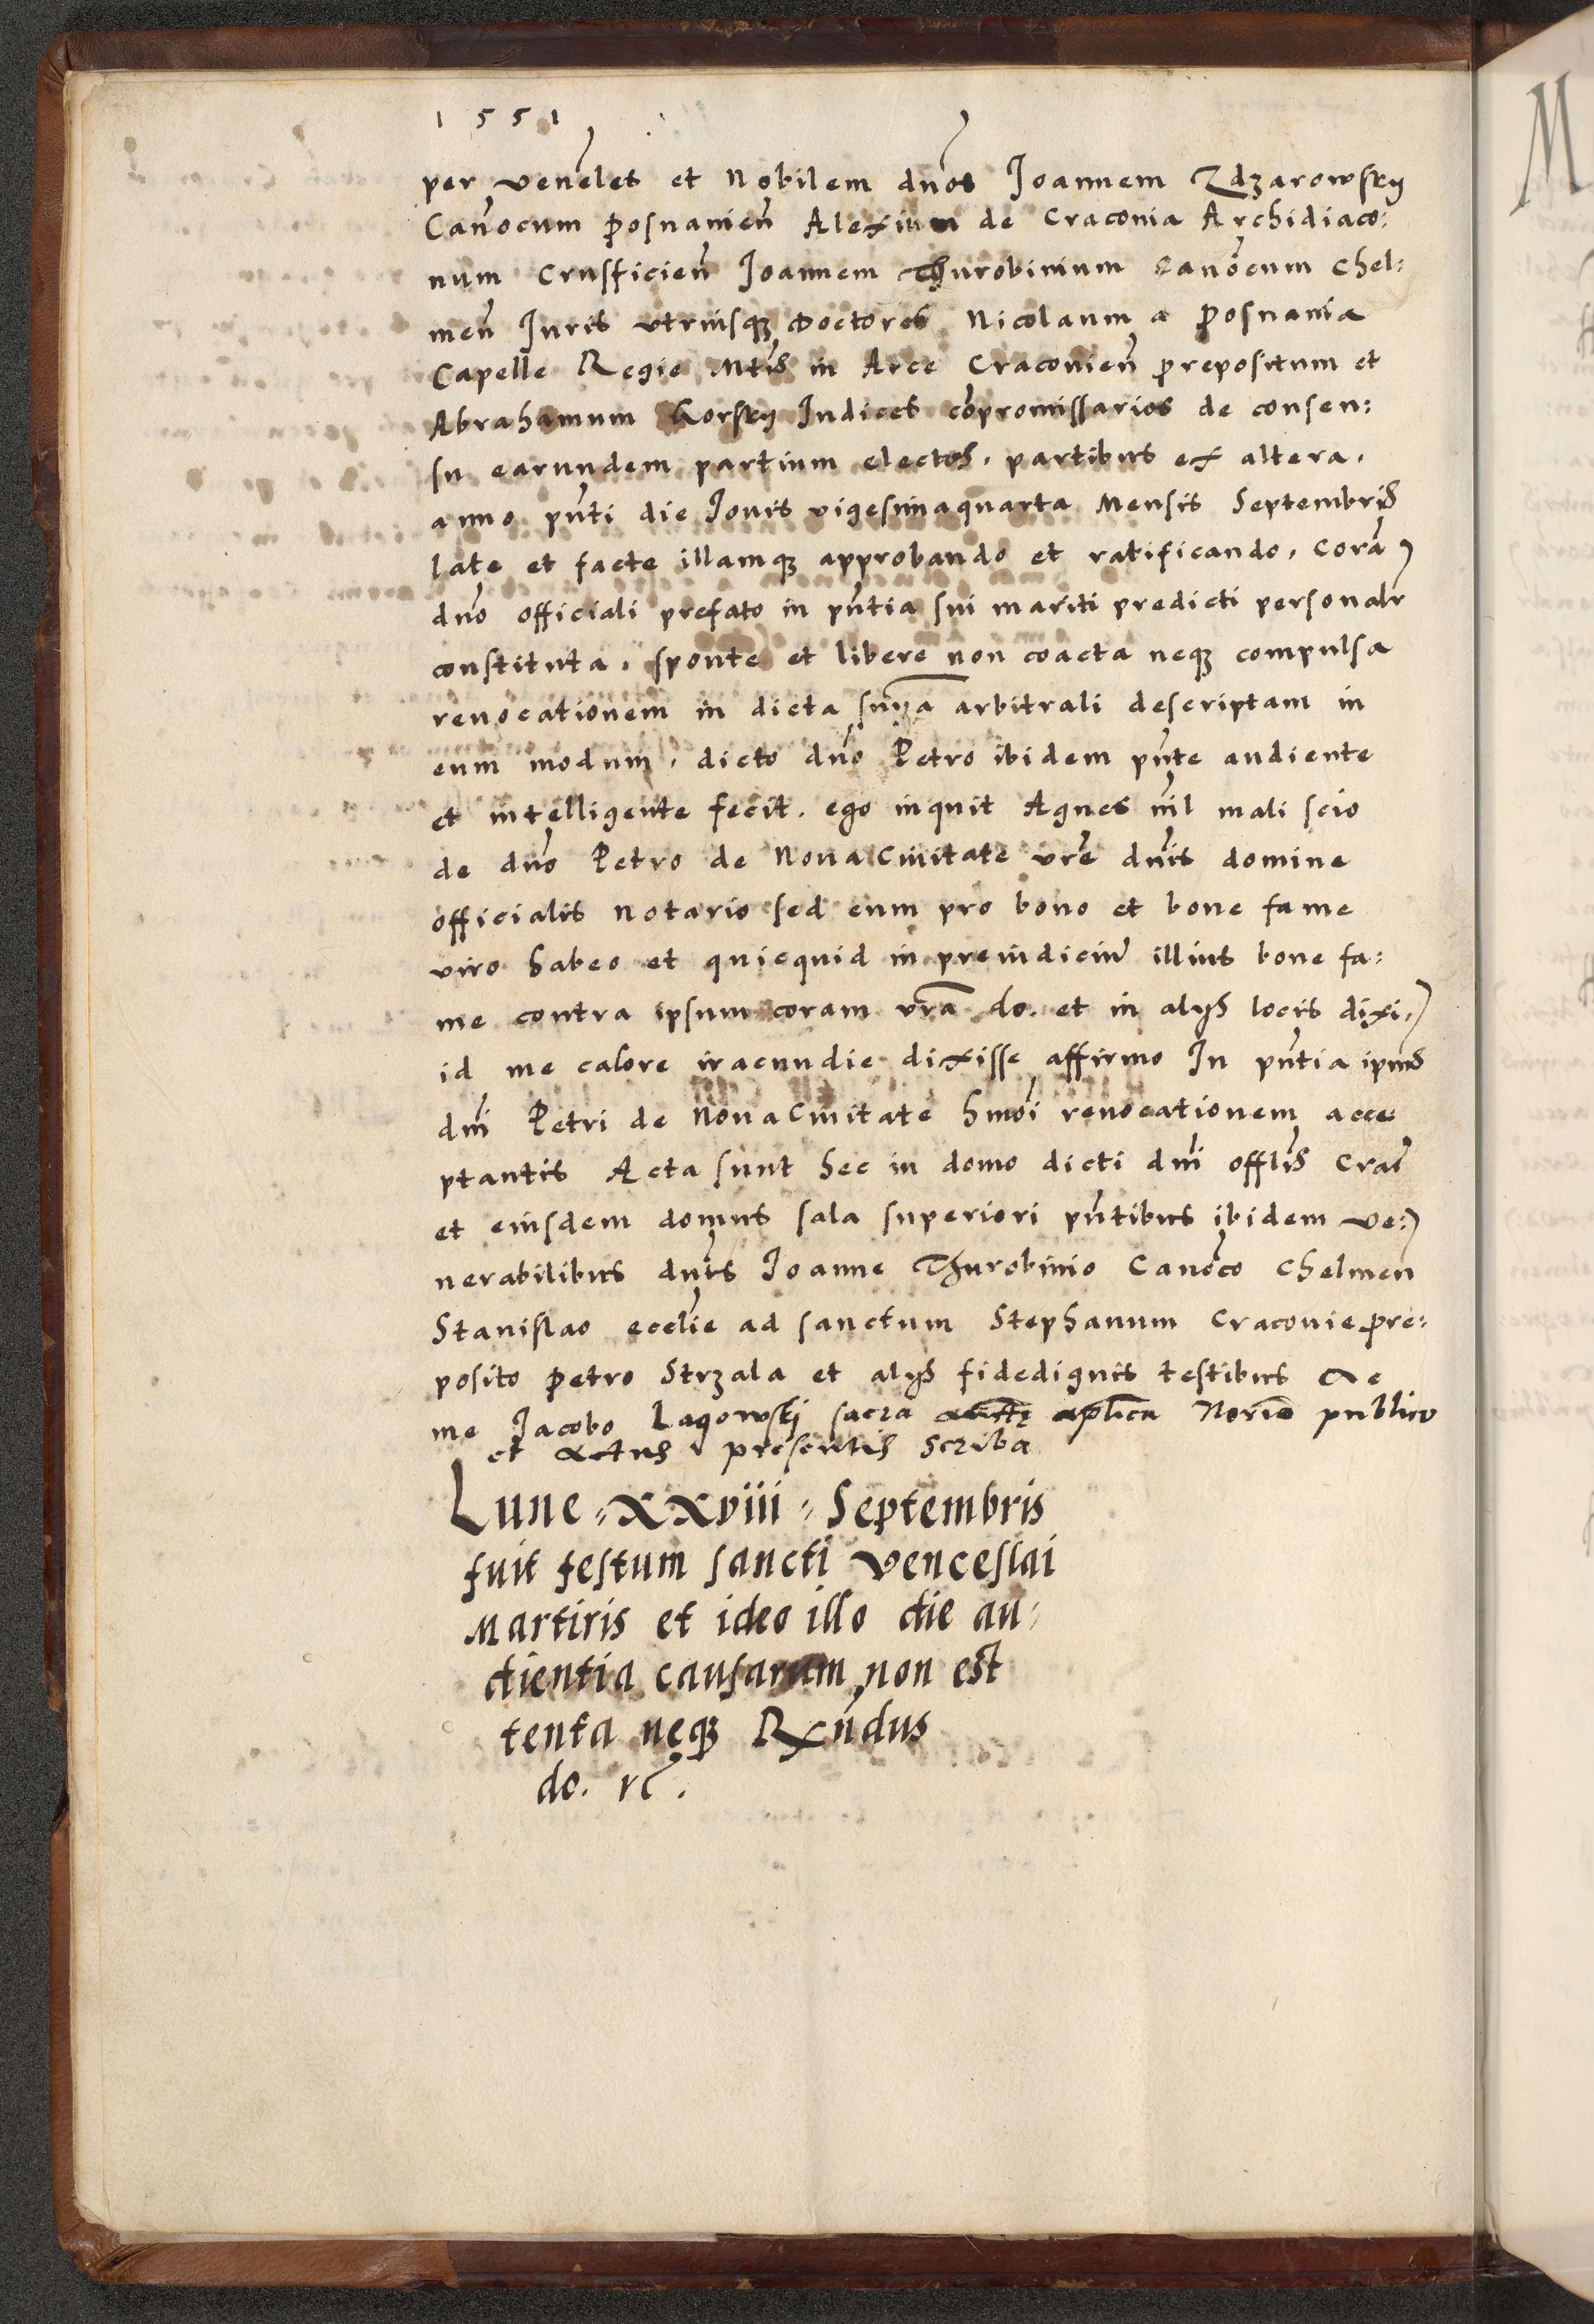 1551
per venēles et Nobilem dnos Joannem Zdzarowsky
Canōcum Posnanień Alexium de Craconia Archidiaco:
num Crusficień Joannem Thurobinium Canōcum Chel:
meń Juris vtriusqꝫ Doctores Nicolaum a Posnania
Capelle Regie Mtis in Arce Cracouień prepositum et
Abrahamum Gorsky Judices cōpromissarios de consen:
su earundem partium electos. partibus ex altera.
anno pn̄ti die Jouis vigesimaquarta Mensis Septembris
late et facte illamqꝫ approbando et ratificando, Corā
dn̄o officiali prefato in pn̄tia sui mariti predicti personalr
constituta, sponte et libere non coacta neqꝫ compulsa
reuocationem in dicta sn̄ia arbitrali descriptam in
eum modum, dicto dn̄o Petro ibidem pn̄te audiente
et intelligente fecit. ego inquit Agnes nil mali scio
de dn̄o Petro de Noua Ciuitate vrē dn̄is domine
officialis notario sed eum pro bono et bone fame
viro habeo et quicquid in preiudiciū illius bone fa:
me contra ipsum coram vrā do. et in alijs locis dixi,
id me calore iracundie dixisse affirmo In pn̄tia ipius
dn̄i Petri de Noua Ciuitate hmōi reuocationem acce
ptantis Acta sunt hec in domo dicti dn̄i offlis Crac̄
et eiusdem domus sala superiori pn̄tibus ibidem ve:
nerabilibus dn̄is Joanne Thurobinio Canōco Chelmeń
Stanislao ecclīe ad sanctum Stephanum Cracouie pre:
posito Petro Strzala et alijs fidedignis testibus Ac
me Jacobo Lagowskj sacra auctē aplica Norio publico
et actus presentis scriba
Lune XXVIII Septembris
fuit festum sancti Venceslai
Martiris et ideo illo die au:
dientia causarum non est
tenta neqꝫ Rn̄dus
do. rc̄.